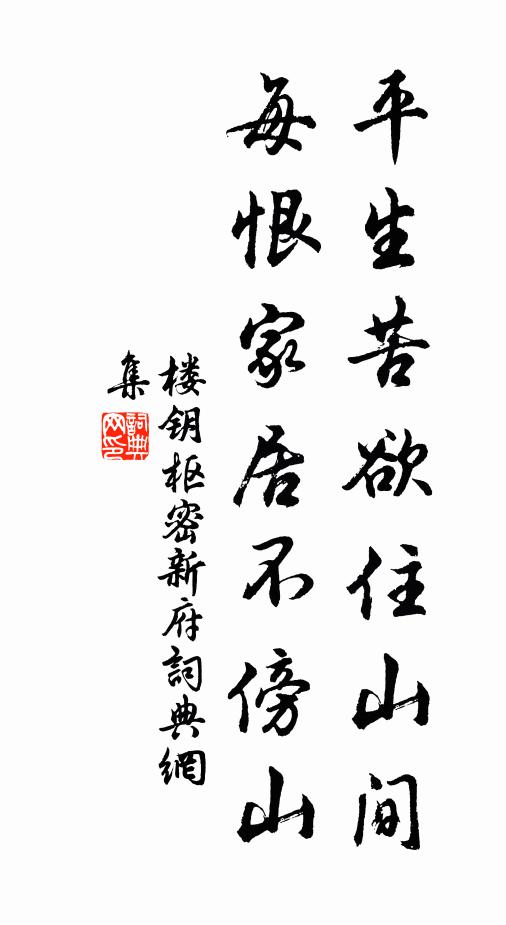 平生苦欲住山间
每恨家居不傍山
楼钥枢密新府詞典網
集
詞典
网印